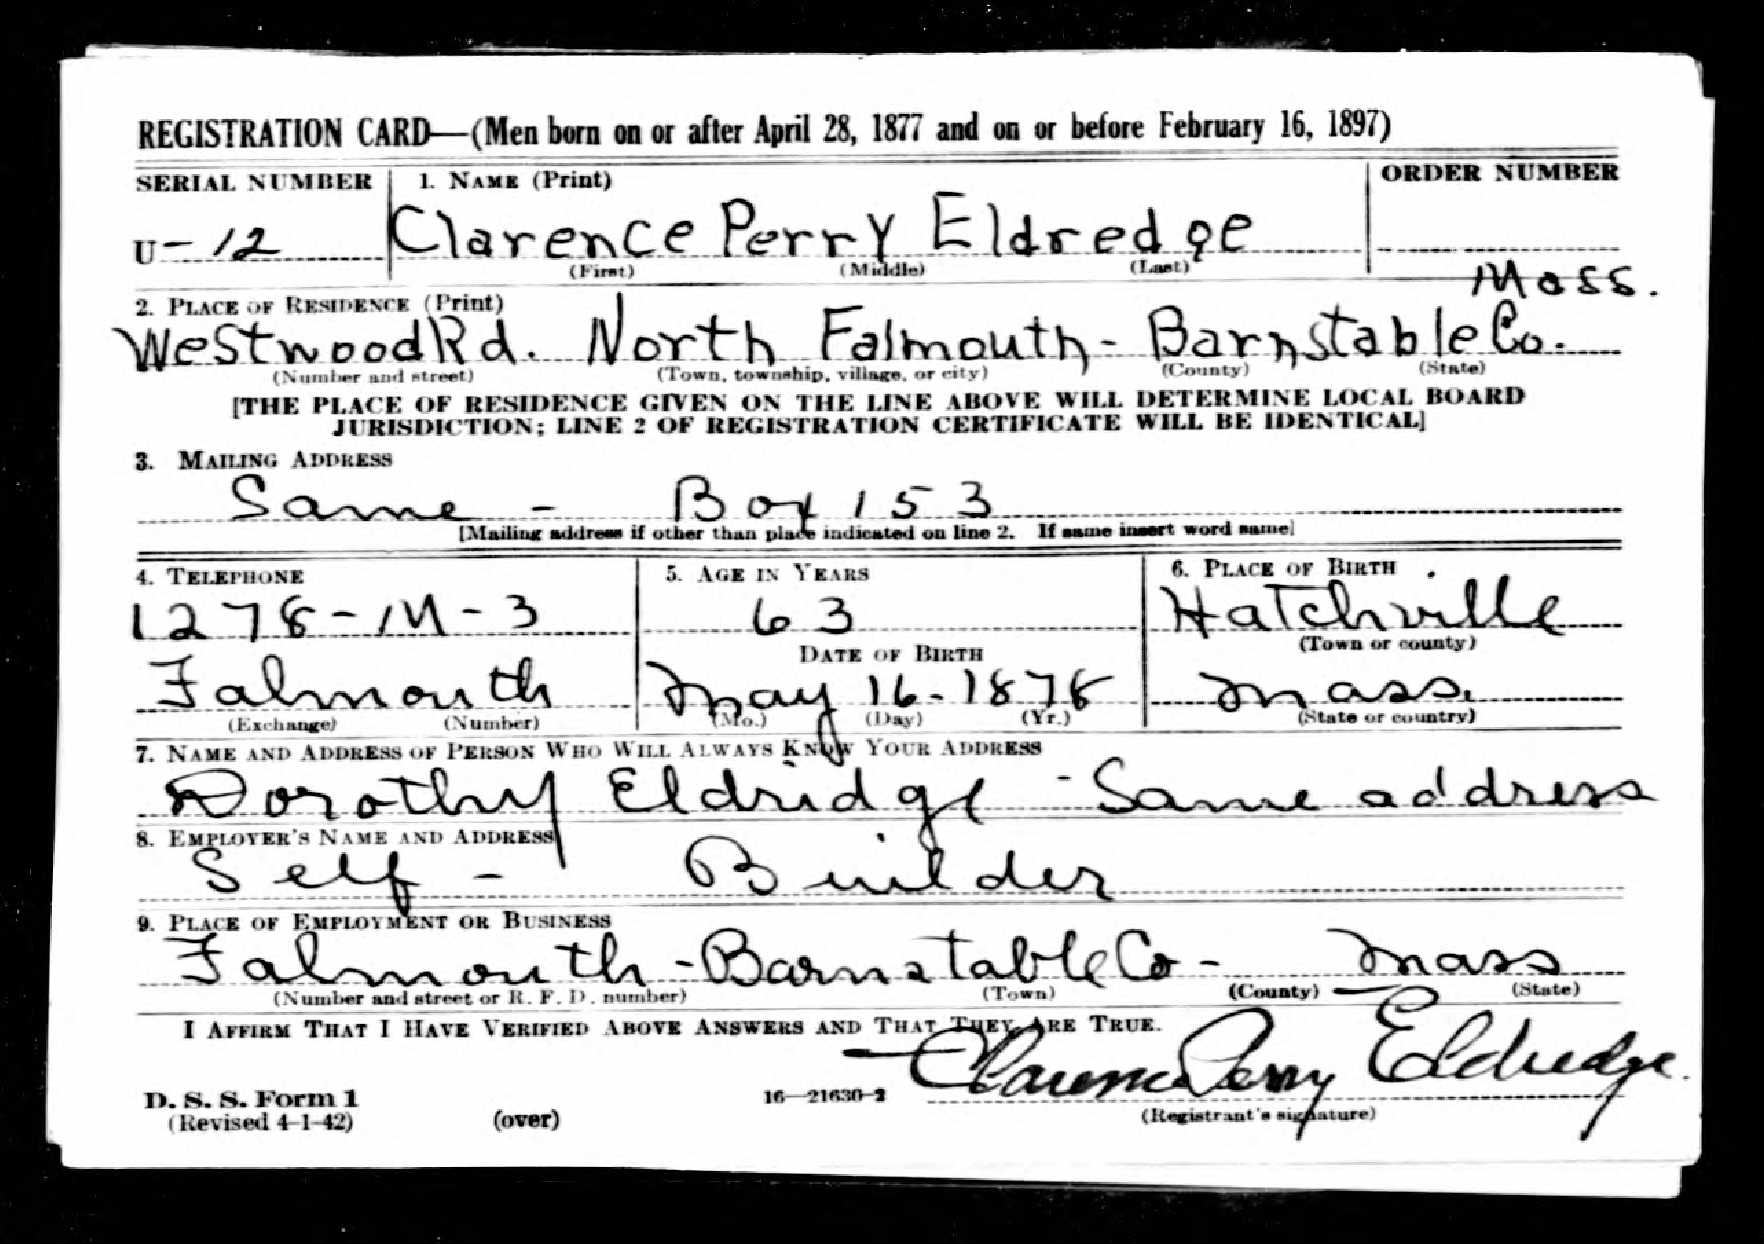 REGISTRATION CARD—(Men born on or after April 28, 1877 and on or before February 16, 1897)
SERIAL NUMBER 1. NAME (Print) ORDER NUMBER
U-12 Clarence Perry Eldredge
(First) (Middle) (Last)
Mass.
2. PLACE OF RESIDENCE (Print)
Westwood Rd. North Falmouth - Barnstable Co.
(Number and street) (Town, township, village, or city) (County) (State)
[THE PLACE OF RESIDENCE GIVEN ON THE LINE ABOVE WILL DETERMINE LOCAL BOARD
JURISDICTION; LINE 2 OF REGISTRATION CERTIFICATE WILL BE IDENTICAL]
3. MAILING ADDRESS
Same - Box 153
[Mailing address if other than place indicated on line 2. If same insert word same]
4. TELEPHONE 5. AGE IN YEARS 6. PLACE OF BIRTH
1278-M-3 63 Hatchville
(Town or county)
DATE OF BIRTH
Falmouth May 16-1878 Mass.
(Exchange) (Number) (Mo.) (Day) (Yr.) (State or country)
7. NAME AND ADDRESS OF PERSON WHO WILL ALWAYS KNOW YOUR ADDRESS
Dorothy Eldridge - Same address
8. EMPLOYER'S NAME AND ADDRESS
Self - Builder
9. PLACE OF EMPLOYMENT OR BUSINESS
Falmouth - Barnstable Co - Mass
(Number and street or R. F. D. number) (Town) (County) (State)
I AFFIRM THAT I HAVE VERIFIED ABOVE ANSWERS AND THAT THEY ARE TRUE.
Clarence Perry Eldredge.
D. S. S. Form 1 16—21630-2
(Revised 4-1-42) (over) (Registrant's signature)